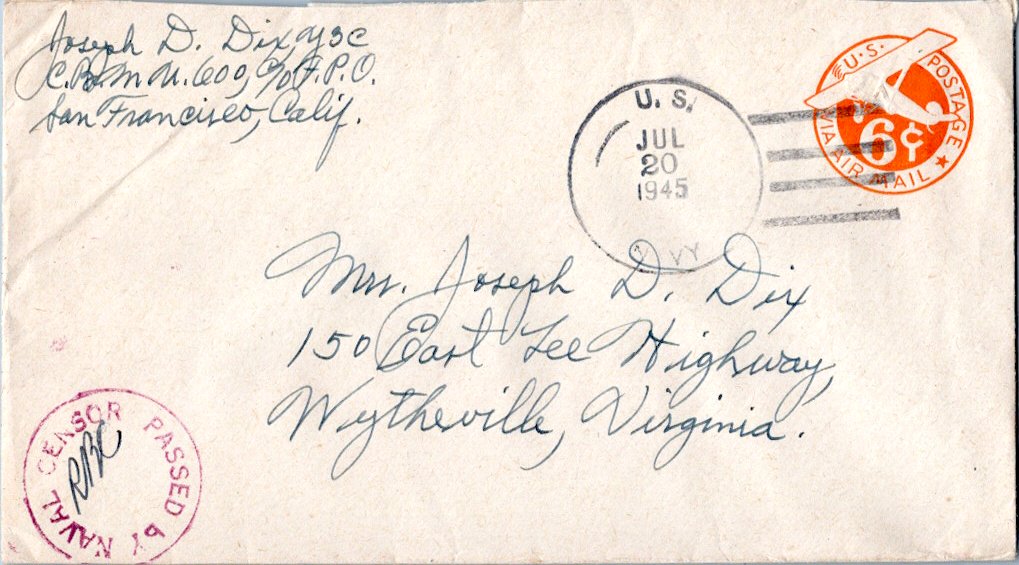 Joseph D. Dix Y3C
C.B.M.U. 600, c/o F.P.O.
San Francisco, Calif.
U. S.
JUL
20
1945
NAVY
U.S. POSTAGE
6¢
VIA AIR MAIL
Mrs. Joseph D. Dix
150 East Lee Highway,
Wytheville, Virginia.
PASSED BY NAVAL CENSOR
RBC